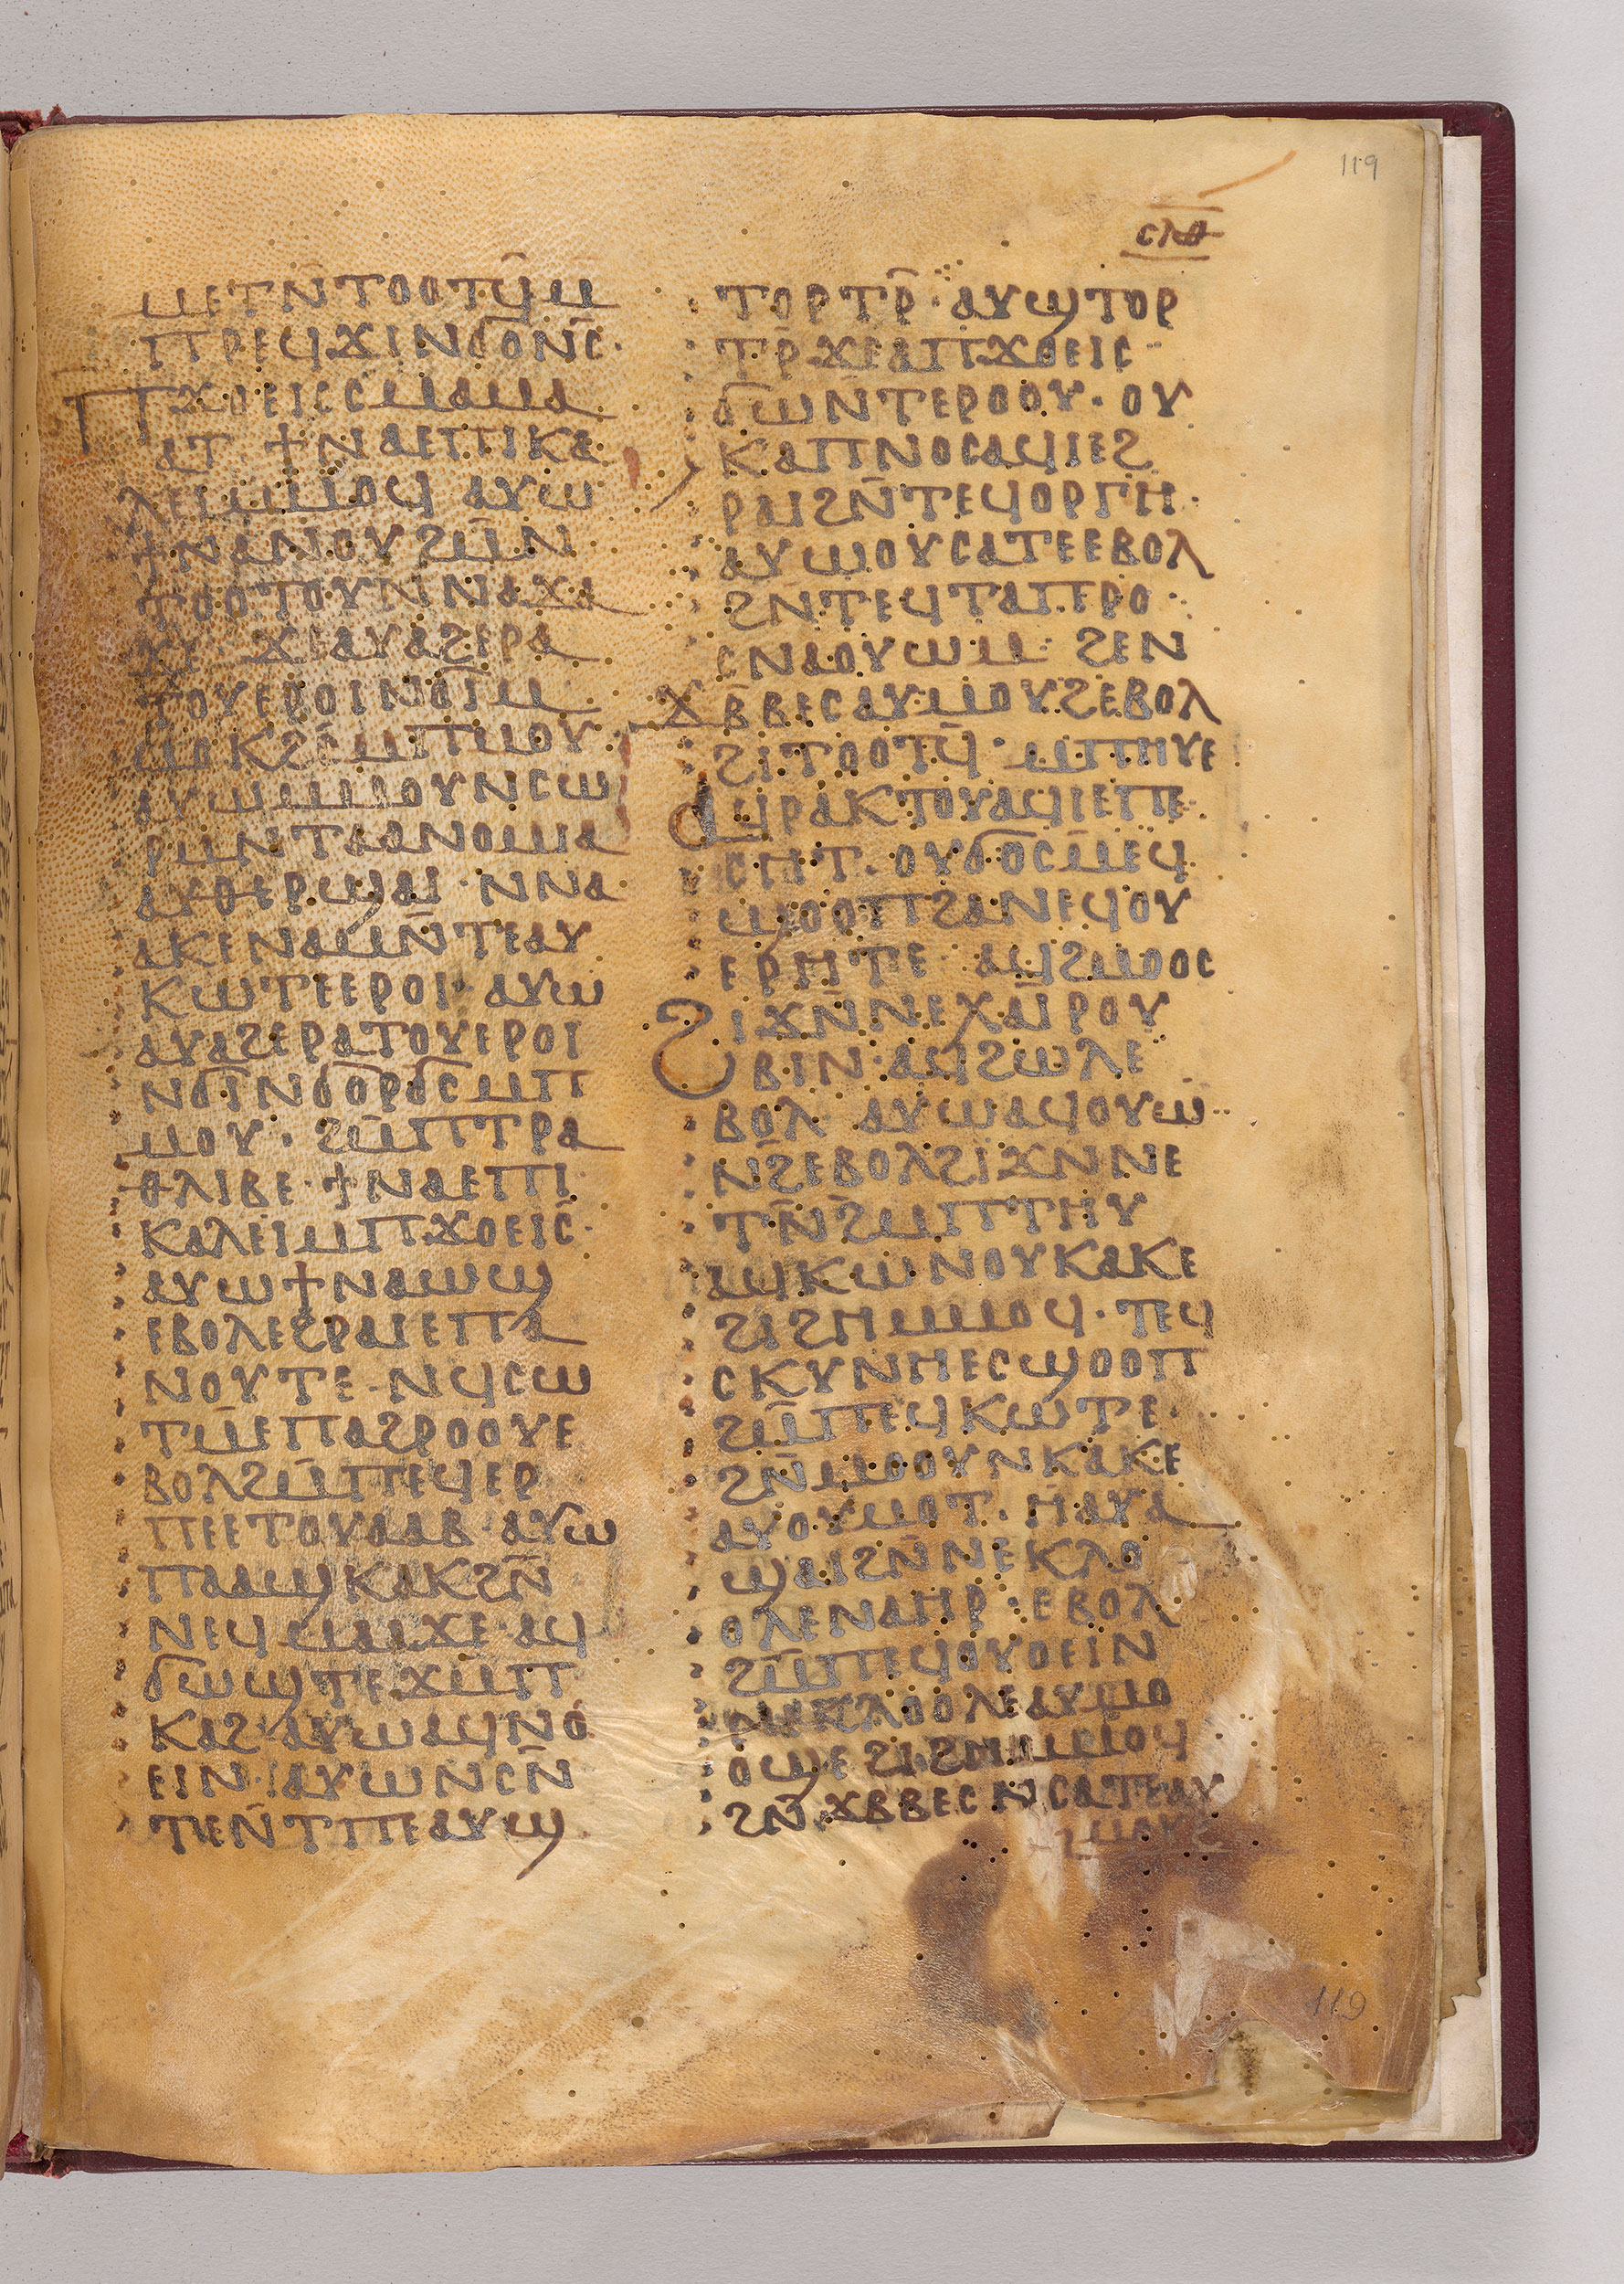 119
ⲥⲗⲑ
ⲙⲉⲧⲛ̄ⲧⲟⲟⲧϥ̄ⲙ
ⲡⲣⲉϥϫⲓⲛϭⲟⲛⲥ̄·
ⲡϫⲟⲉⲓⲥⲥⲙⲁⲙⲁ
ⲁⲧ· ϯⲛⲁⲉⲡⲓⲕⲁ
ⲗⲉⲓⲙⲙⲟϥ ⲁⲩⲱ
ϯⲛⲁⲛⲟⲩϩⲙ̄ⲛ
ⲧⲟⲟⲧⲟⲩⲛⲛⲁϫⲁ
ϫⲉ· ϫⲉⲁⲩⲁϩⲉⲣⲁ
ⲧⲟⲩⲉⲣⲟⲓⲛϭⲓⲙ
ⲙⲟⲕϩⲥ̄ⲙⲡⲙⲟⲩ·
ⲁⲩⲱⲙⲙⲟⲩⲛⲥⲱ
ⲣⲙⲛⲧⲁⲁⲛⲟⲙⲓⲁ
ⲁⲩⲑⲉⲣϣⲁⲓ·ⲛⲛⲁ
ⲁⲕⲉⲛⲁⲙⲛ̄ⲧⲉⲁⲩ
ⲕⲱⲧⲉⲉⲣⲟⲓ· ⲁⲩⲱ
ⲁⲩⲁϩⲉⲣⲁⲧⲟⲩⲉⲣⲟⲓ
ⲛϭⲓⲛϭⲟⲣϭⲥⲙⲡ
ⲙⲟⲩ· ϩⲙ̄ⲡⲧⲣⲁ
ⲑⲗⲓⲃⲉ·ϯⲛⲁⲉⲡⲓ
ⲕⲁⲗⲉⲓⲙⲡϫⲟⲉⲓⲥ̄·
ⲁⲩⲱϯⲛⲁⲱϣ
ⲉⲃⲟⲗⲉϩⲣⲁⲓⲉⲡⲁ
ⲛⲟⲩⲧⲉ·ⲛϥⲥⲱ
ⲧⲙ̄ⲉⲡⲁϩⲣⲟⲟⲩⲉ
ⲃⲟⲗϩⲙ̄ⲡⲉϥⲉⲣ
ⲡⲉⲉⲧⲟⲩⲁⲁⲃ·ⲁⲩⲱ
ⲡⲁⲁϣⲕⲁⲕϩⲛ̄
ⲛⲉϥⲙⲁⲁϫⲉ·ⲁϥ
ϭⲱϣⲧⲉϫⲙⲡ
ⲕⲁϩ·ⲁⲩⲱⲁϥⲛⲟ
ⲉⲓⲛ·ⲁⲩⲱⲛⲥⲛ̄
ⲧⲉⲛ̄ⲧⲡⲉⲁⲩϣ
ⲧⲟⲣⲧⲣ̄·ⲁⲩϣⲧⲟⲣ
ⲧⲣ̄ϫⲉⲁⲡϫⲟⲉⲓⲥ
ϭⲱⲛ̄ⲧⲉⲣⲟⲟⲩ·ⲟⲩ
ⲕⲁⲡⲛⲟⲥⲁϥⲓⲉϩ
ⲣⲁⲓϩⲛ̄ⲧⲉϥⲟⲣⲅⲏ·
ⲁⲩⲱⲟⲩⲥⲁⲧⲉⲉⲃⲟⲗ
ϩⲛⲧⲉϥⲧⲁⲡⲣⲟ·
ⲥⲛⲁⲟⲩⲱⲙ· ϩⲉⲛ
ϫⲃ̄ⲃⲉⲥⲁⲩⲙⲟⲩϩⲉⲃⲟⲗ
ϩⲓⲧⲟⲟⲧϥ̄·ⲙⲡⲏⲩⲉ
ⲁϥⲣⲁⲕⲧⲟⲩⲁϥⲓⲉⲡⲉ
ⲥⲏⲧ·ⲟⲩϭⲟⲥⲙ̄ⲉϥ
ϣⲟⲟⲡϩⲁⲛⲉϥⲟⲩ
ⲉⲣⲏⲧⲉ· ⲁϥϩⲙⲟⲟⲥ
ϩⲓϫⲛ̄ⲛⲉⲭⲁⲓⲣⲟⲩ
ⲃⲓⲛ·ⲁϥϩⲱⲗⲉ
ⲃⲟⲗ ⲁⲩⲱⲁϥⲟⲩⲱ
ⲛϩⲉⲃⲟⲗϩⲓϫⲛⲛⲉ
ⲧⲛ̄ϩⲙⲡⲧⲏⲩ
ⲁϥⲕⲱⲛⲟⲩⲕⲁⲕⲉ
ϩⲓϩⲏⲙⲙⲟϥ·ⲧⲉϥ
ⲥⲕⲩⲛⲏⲉⲥϣⲟⲟⲡ
ϩⲙ̄ⲡⲉϥⲕⲱⲧⲉ·
ϩⲛ̄ⲙⲟⲟⲩⲛⲕⲁⲕⲉ
ⲁⲩⲟⲩⲙⲟⲧ·ⲏⲁⲩⲁ
ϣⲁⲓϩⲛ̄ⲛⲉⲕⲗⲟ
ⲟⲗⲉⲛⲁⲏⲣ·ⲉⲃⲟⲗ
ϩⲙ̄ⲡⲉϥⲟⲩⲟⲉⲓⲛ
ⲛⲉⲕⲗⲟⲟⲗⲉⲁⲩⲙⲟ
ⲟϣⲉϩⲓϩⲏⲙⲙⲟϥ
ϩⲛ̄ϫⲃⲃⲉⲥⲛⲥⲁⲧⲉⲁⲩ
119